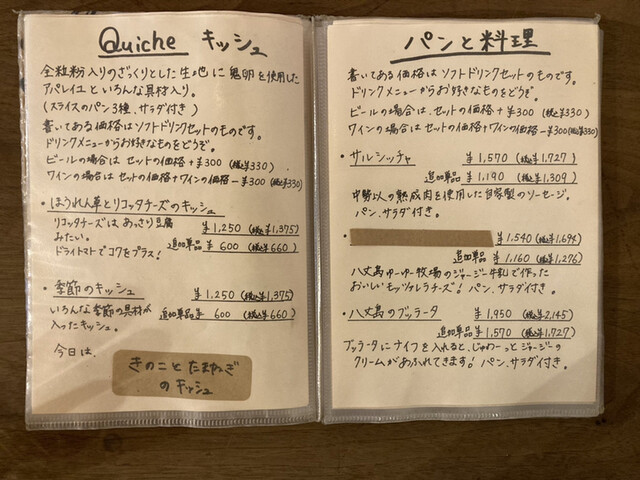 Quiche キッシュ
全粒粉入りのざっくりとした生地に鬼卵を使用した
アパレイユといろんな具材入り。
(スライスのパン3種、サラダ付き)
書いてある価格はソフトドリンクセットのものです。
ドリンクメニューからお好きなものをどうぞ。
ビールの場合は セットの価格+¥300 (税込¥330)
ワインの場合は セットの価格+ワインの価格-¥300 (税込¥330)
・ほうれん草とリコッタチーズのキッシュ
リコッタチーズは、あっさり豆腐 ¥1,250 (税込¥1,375)
みたい。 追加単品 ¥600 (税込¥660)
ドライトマトでコクをプラス!
・季節のキッシュ ¥1,250 (税込¥1,375)
いろんな季節の具材が 追加単品 ¥600 (税込¥660)
入ったキッシュ。
今日は、
きのことたまねぎ
のキッシュ
パンと料理
書いてある価格はソフトドリンクセットのものです。
ドリンクメニューからお好きなものをどうぞ。
ビールの場合は、セットの価格+¥300 (税込¥330)
ワインの場合は セットの価格+ワインの価格-¥300 (税込¥330)
・サルシッチャ ¥1,570 (税込¥1,727)
追加単品 ¥1,190 (税込¥1,309)
中勢以の熟成肉を使用した自家製のソーセージ。
パン、サラダ付き。
・ ¥1,540 (税込¥1,694)
追加単品 ¥1,160 (税込¥1,276)
八丈島ゆーゆー牧場のジャージー牛乳で作った
おいしいモッツァレラチーズ! パン、サラダ付き。
・八丈島のブッラータ ¥1,950 (税込¥2,145)
追加単品 ¥1,570 (税込¥1,727)
ブッラータにナイフを入れると、じゅわーっとジャージーの
クリームがあふれてきます! パン、サラダ付き。